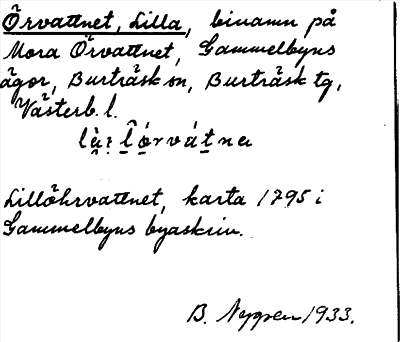 Örvattnet, Lilla, binamn på
Mora Örvattnet, Gammelbyns
ägor, Burträsk sn, Burträsk tg,
Västerb. l.
Lillöhrvattnet, karta 1795 i
Gammelbyns byaskrin.
B. Nygren 1933.